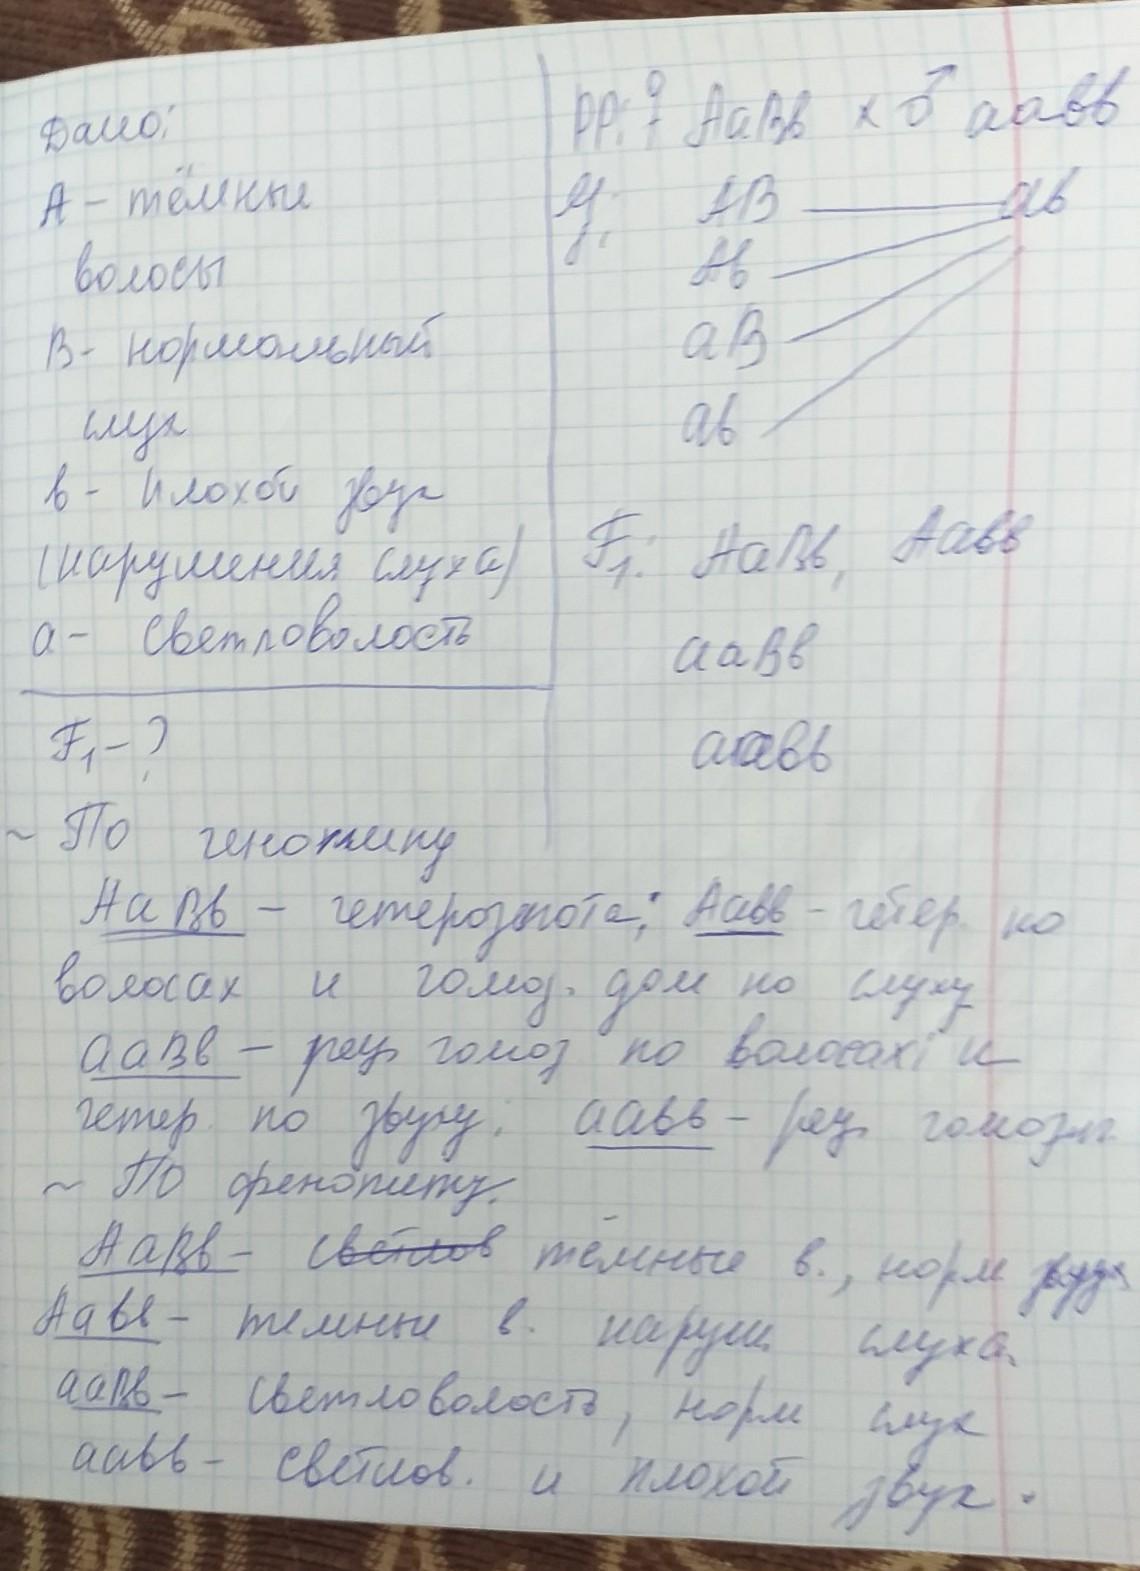 Дано:
А - тёмные
волосы
В - нормальный
слух
в - плохой звук
(нарушения слуха)
а - светловолость
F₁ - ?
РР: ♀ АаВв х ♂ аавв
G: АВ ав
Ав
аВ
ав
F₁: АаВв, Аавв
ааВв
аавв
~ По генотипу
АаВв - гетерозигота; Аавв - гетер. по
волосах и гомоз. дом по слуху
ааВв - рец. гомоз по волосах и
гетер. по звуку; аавв - рец. гомозиг
~ По фенотипу.
АаВв - светлов тёмные в., норм звук
Аавв - темные в. наруш слуха.
ааВв - светловолость, норм слух
аавв - светлов. и плохой звук.